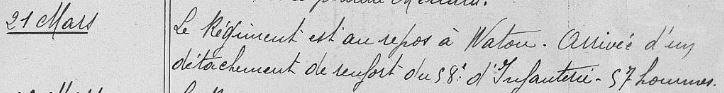 21 Mars
Le Régiment est au repos à Watou. Arrivée d'un
détachement de renfort du 58e d'Infanterie - 57 hommes.